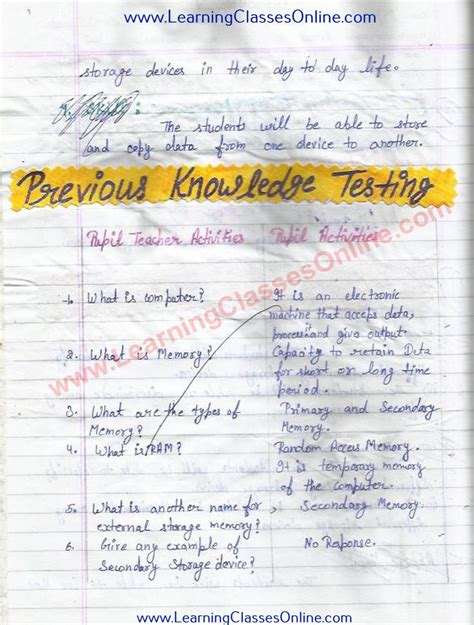 www.LearningClassesOnline.com
storage devices in their day to day life.
The students will be able to store
and copy data from one device to another.
Previous Knowledge Testing
Pupil Teacher Activities
Pupil Activities
1. What is computer?
It is an electronic
machine that acceps data,
process it and give output.
2. What is Memory?
Capacity to retain Data
for short or long time
period.
3. What are the types of
Memory?
Primary and Secondary
Memory.
4. What is RAM?
Random Access Memory.
It is temporary memory
of the computer.
5. What is another name for
external storage memory?
Secondary Memory.
6. Give any example of
Secondary Storage device?
No Response.
www.LearningClassesOnline.com
www.LearningClassesOnline.com